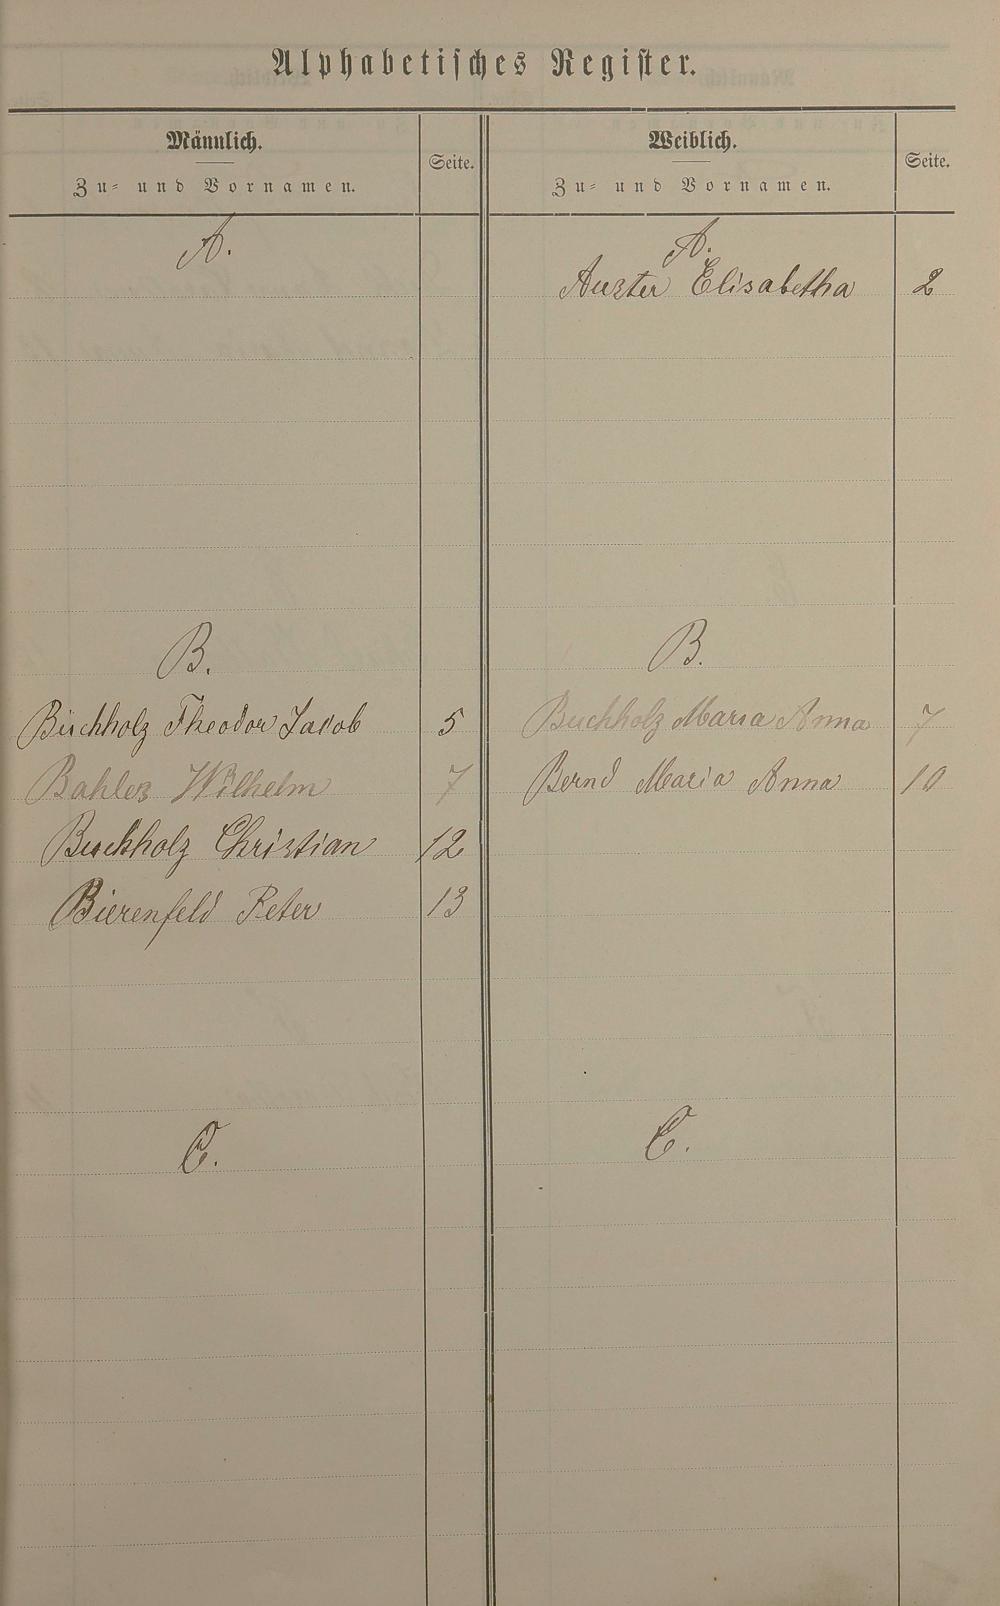 Alphabetisches Register.
Männlich.
Zu- und Vornamen.
Seite.
A.
B.
Buchholz Theodor Jacob 5
Bahles Wilhelm 7
Buchholz Christian 12
Bierenfeld Peter 13
C.
Weiblich.
Zu- und Vornamen.
Seite.
A.
Auster Elisabetha 2
B.
Buchholz Maria Anna 7
Bernd Maria Anna 10
C.